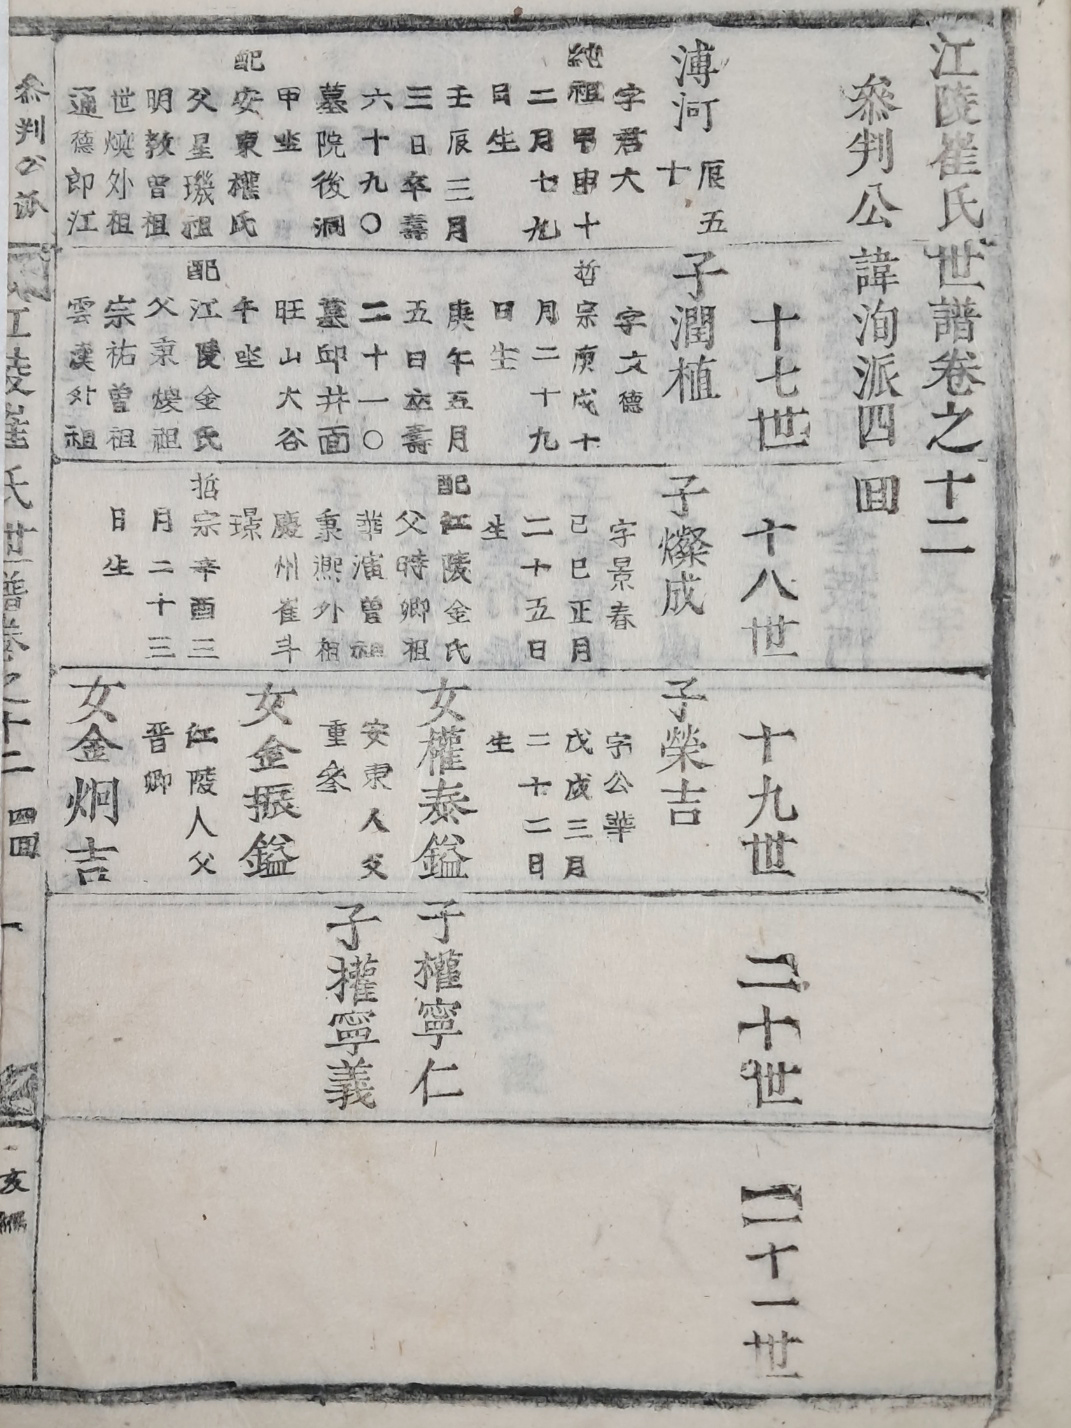 江陵崔氏世譜卷之十二
參判公諱洵派四回
十七世
十八世
十九世
二十世
二十一世
溥河
辰五
十
字君大
純祖甲申十
二月七九
日生
壬辰三月
三日卒壽
六十九〇
墓院後洞
甲坐
配安東權氏
父星璣祖
明敎曾祖
世煥外祖
通德郎江
子潤植
字文德
哲宗庚戌十
月二十九
日生
庚午五月
五日卒壽
二十一〇
墓邱井面
旺山大谷
午坐
配江陵金氏
父秉煥祖
宗祐曾祖
雲漢外祖
子燦成
字景春
己巳正月
二十五日
生
配江陵金氏
父時卿祖
華演曾祖
秉熙外祖
慶州崔斗
璟
哲宗辛酉三
月二十三
日生
子榮吉
字公華
戊戌三月
二十二日
生
女權泰鎰
安東人父
重參
女金振鎰
江陵人父
晋卿
女金炯吉
子權寧仁
子權寧義
參判公派
江陵崔氏世譜卷之十二
四回
一
亥編